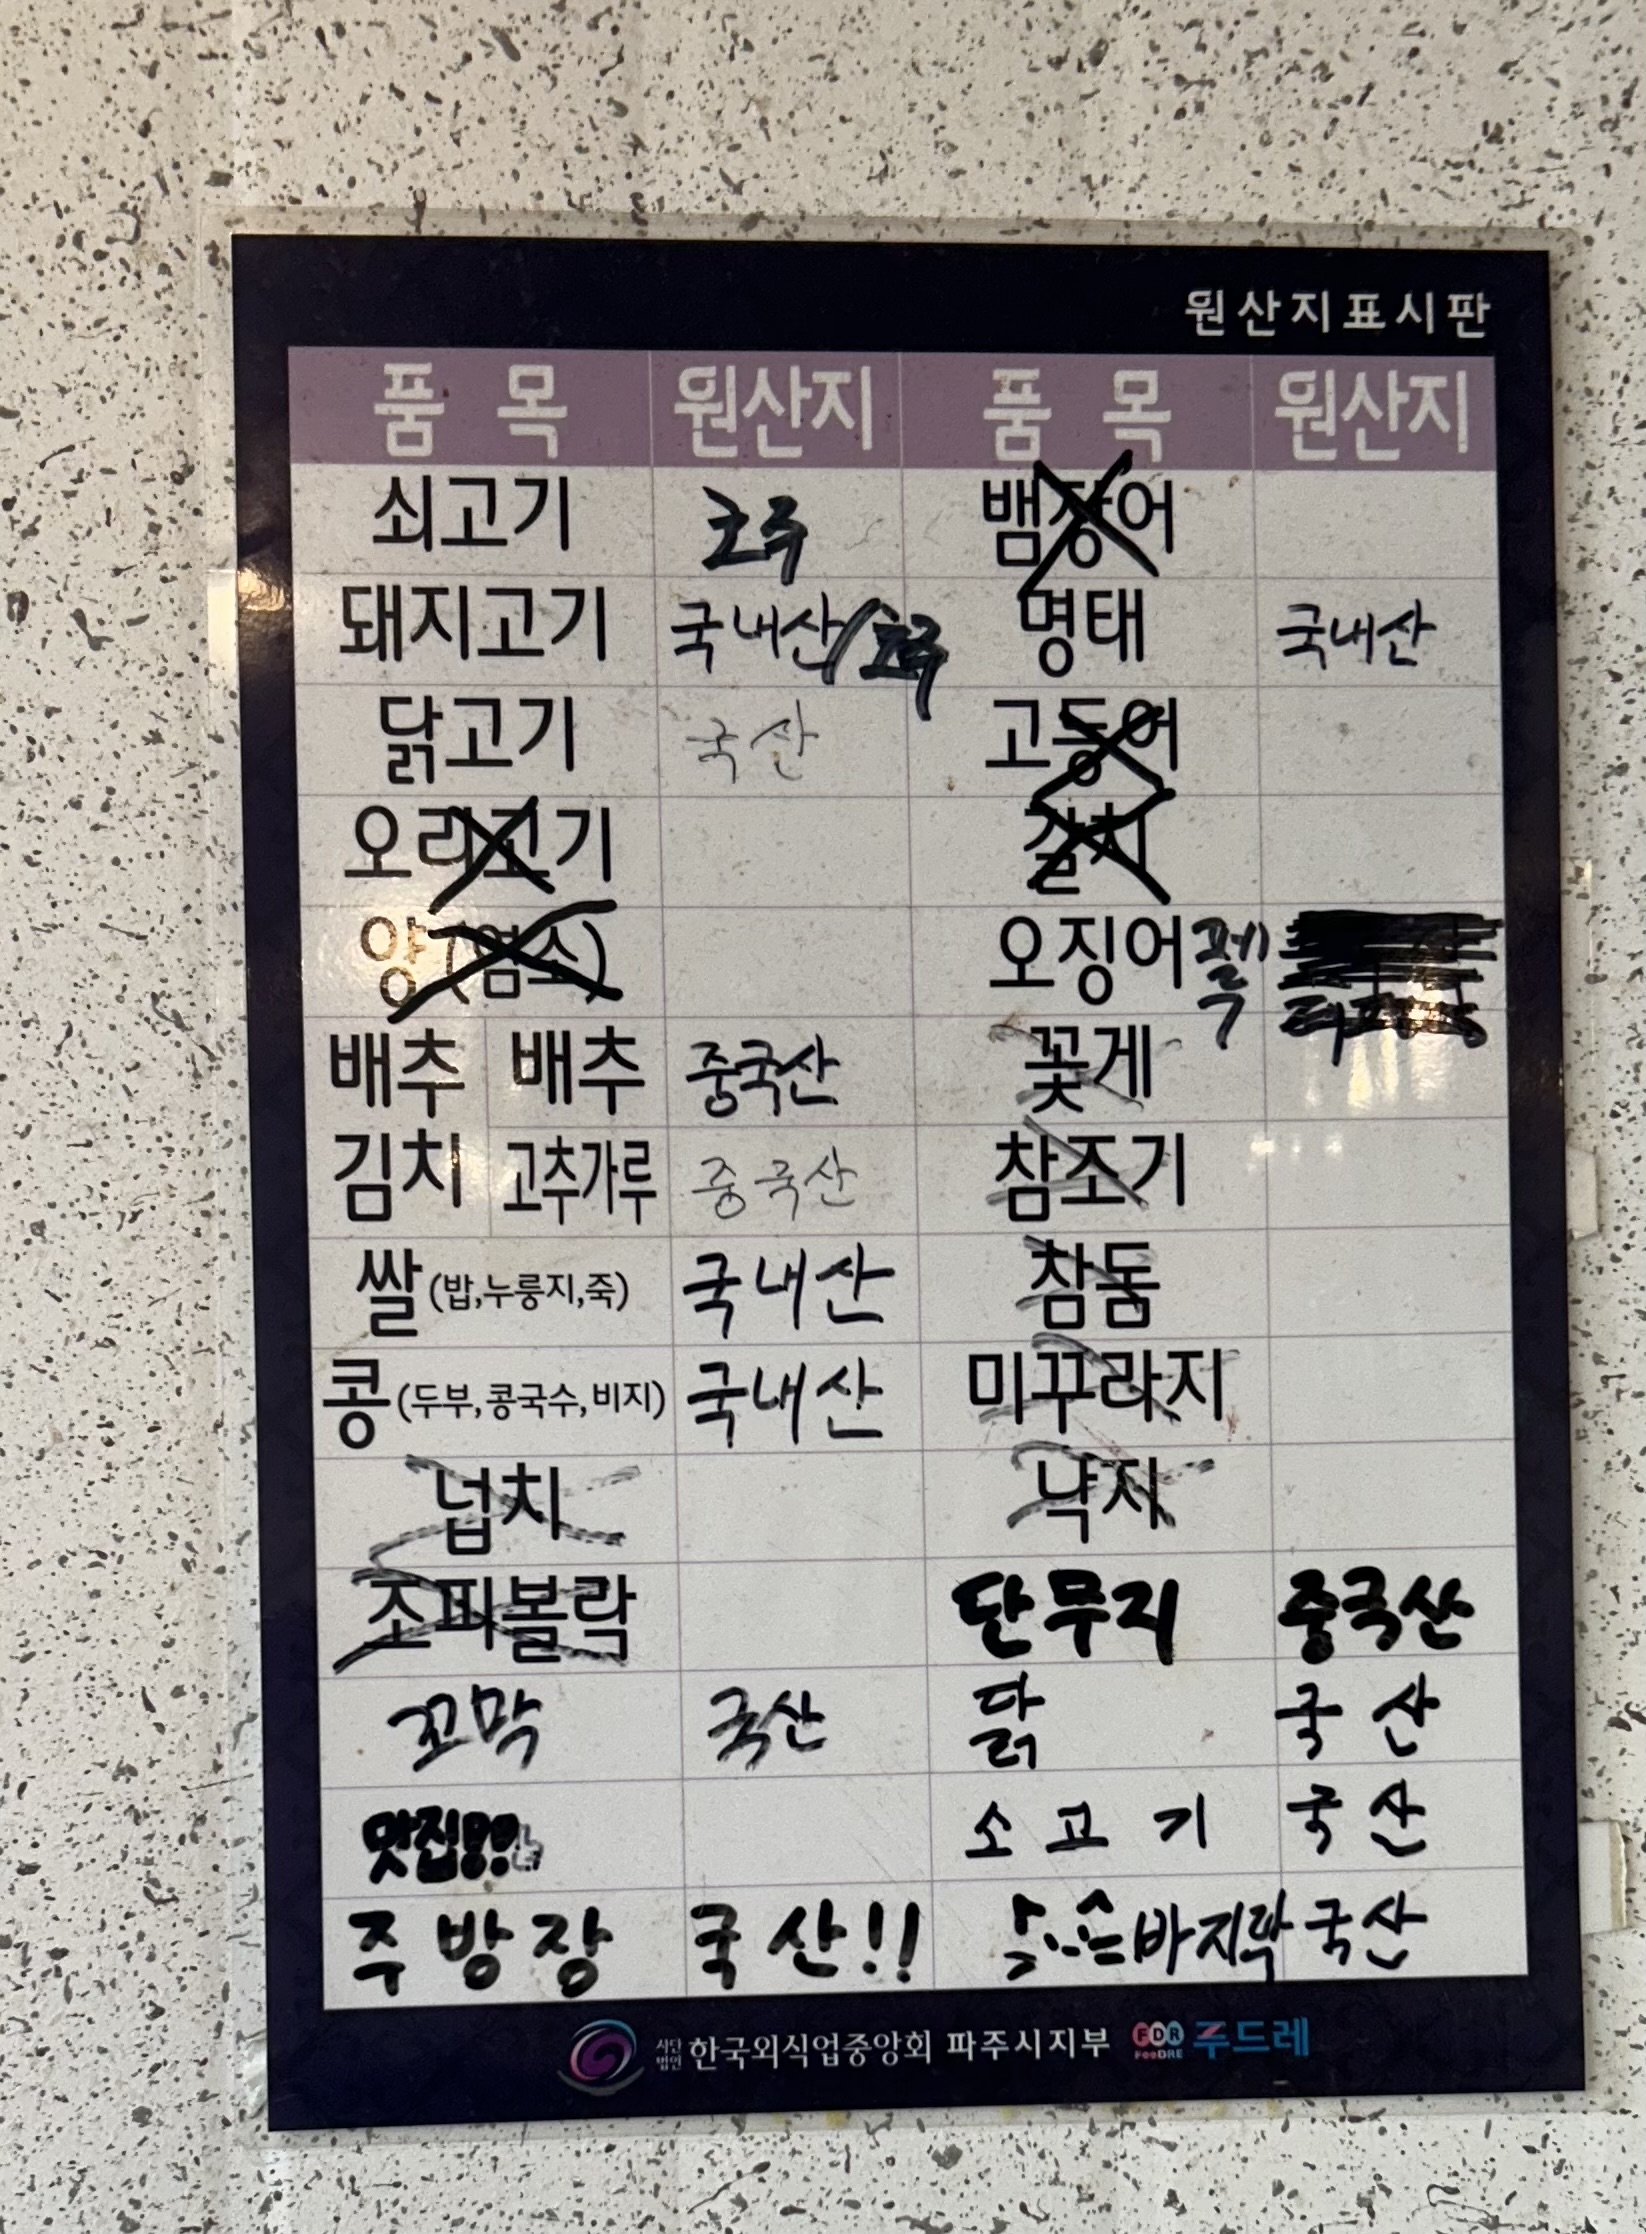 원산지표시판
품 목 원산지 품 목 원산지
쇠고기 호주 뱀장어
돼지고기 국내산/호주 명태 국내산
닭고기 국산 고등어
오리고기 갈치
양(염소) 오징어 페루
배추 배추 중국산 꽃게
김치 고추가루 중국산 참조기
쌀(밥,누룽지,죽) 국내산 참돔
콩(두부,콩국수,비지) 국내산 미꾸라지
넙치 낙지
조피볼락 단무지 중국산
꼬막 국산 닭 국산
맛집!!! 소고기 국산
주방장 국산!! 바지락 국산
사단법인 한국외식업중앙회 파주시지부 FDR FooDRE 푸드레